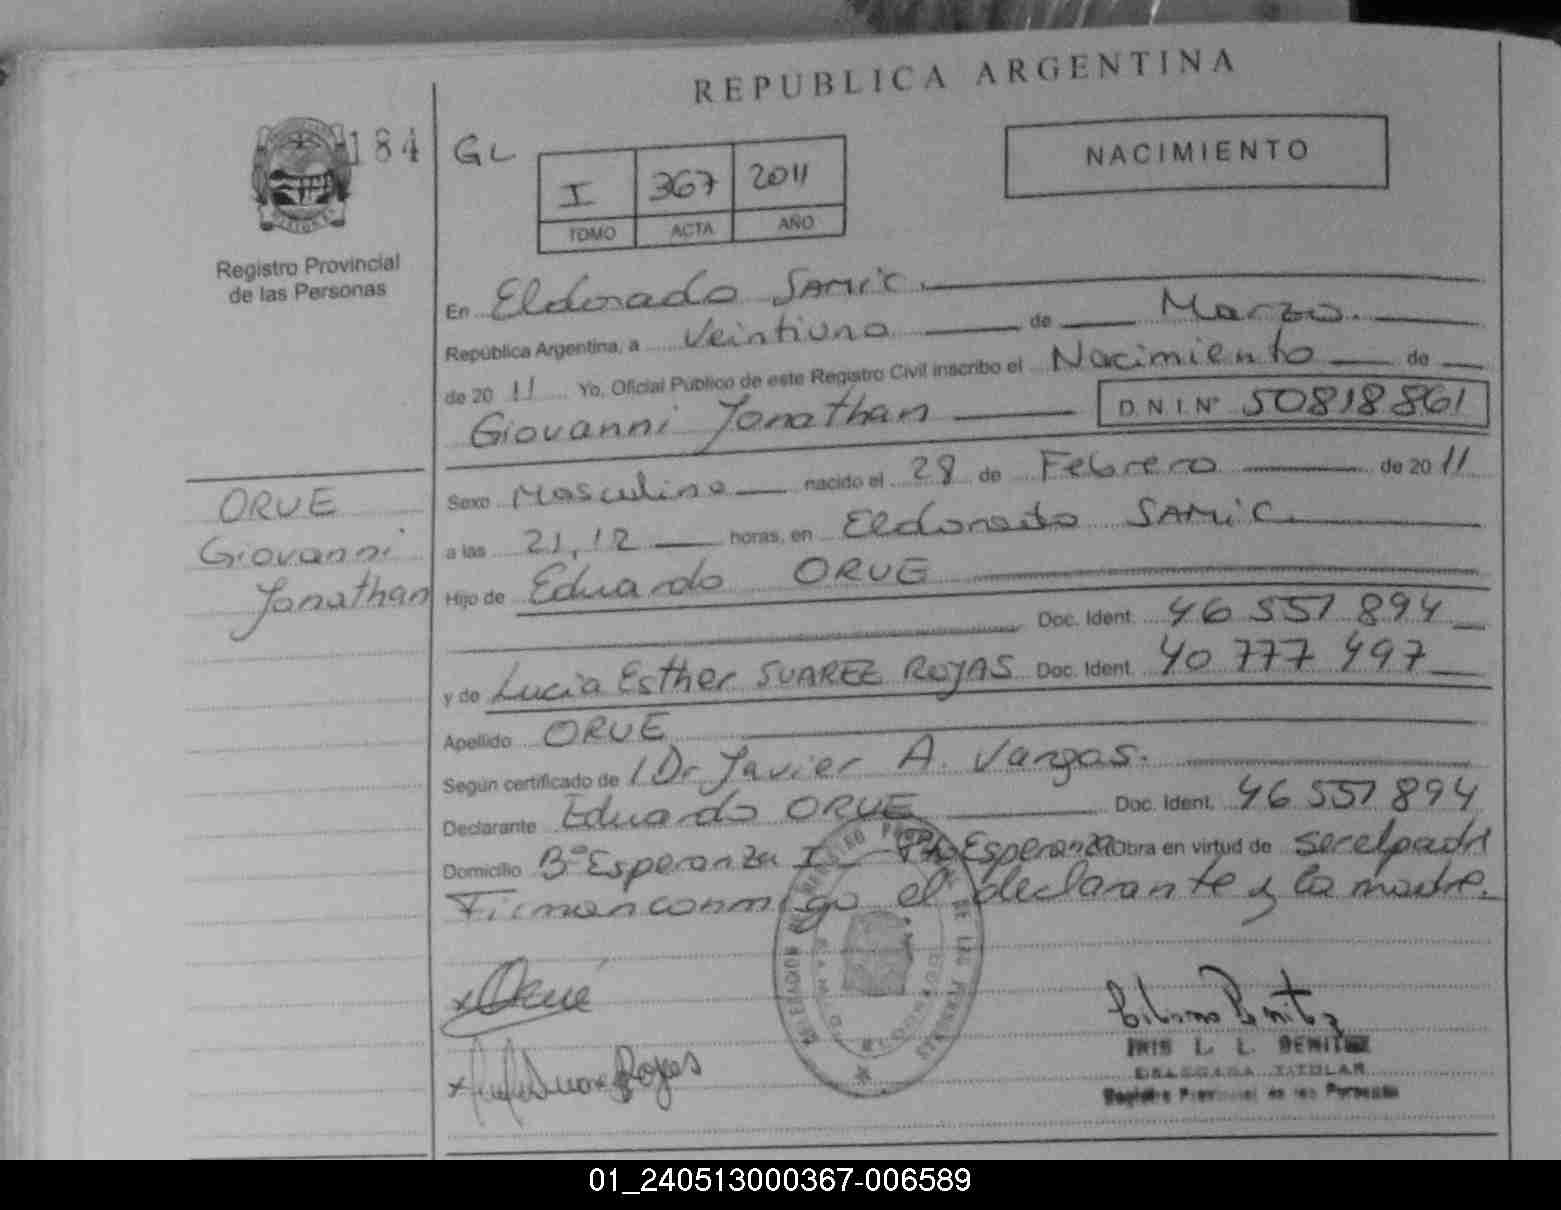 REPUBLICA ARGENTINA
184 GL
I 367 2011
TOMO ACTA AÑO
NACIMIENTO
Registro Provincial
de las Personas
En Eldorado SAMIC
República Argentina, a Veintiuno de Marzo
de 2011 Yo, Oficial Público de este Registro Civil inscribo el Nacimiento de
Giovanni Jonathan D.N.I.Nº 50818861
ORUE
Giovanni
Jonathan
Sexo Masculino nacido el 28 de Febrero de 2011
a las 21,12 horas, en Eldorado SAMIC
Hijo de Eduardo ORUE
Doc. Ident. 46 557 894
y de Lucia Esther SUAREZ ROJAS Doc. Ident. 40 777 497
Apellido ORUE
Según certificado de Dr Javier A. Vargas.
Declarante Eduardo ORUE Doc. Ident. 46 557 894
Domicilio Bº Esperanza Esperanza Obra en virtud de ser el padre
Firman conmigo el declarante y la madre.
x Orué
x Suarez Rojas
Benitez
IRIS L. L. BENITEZ
DELEGADA TITULAR
Registro Provincial de las Personas
01_240513000367-006589